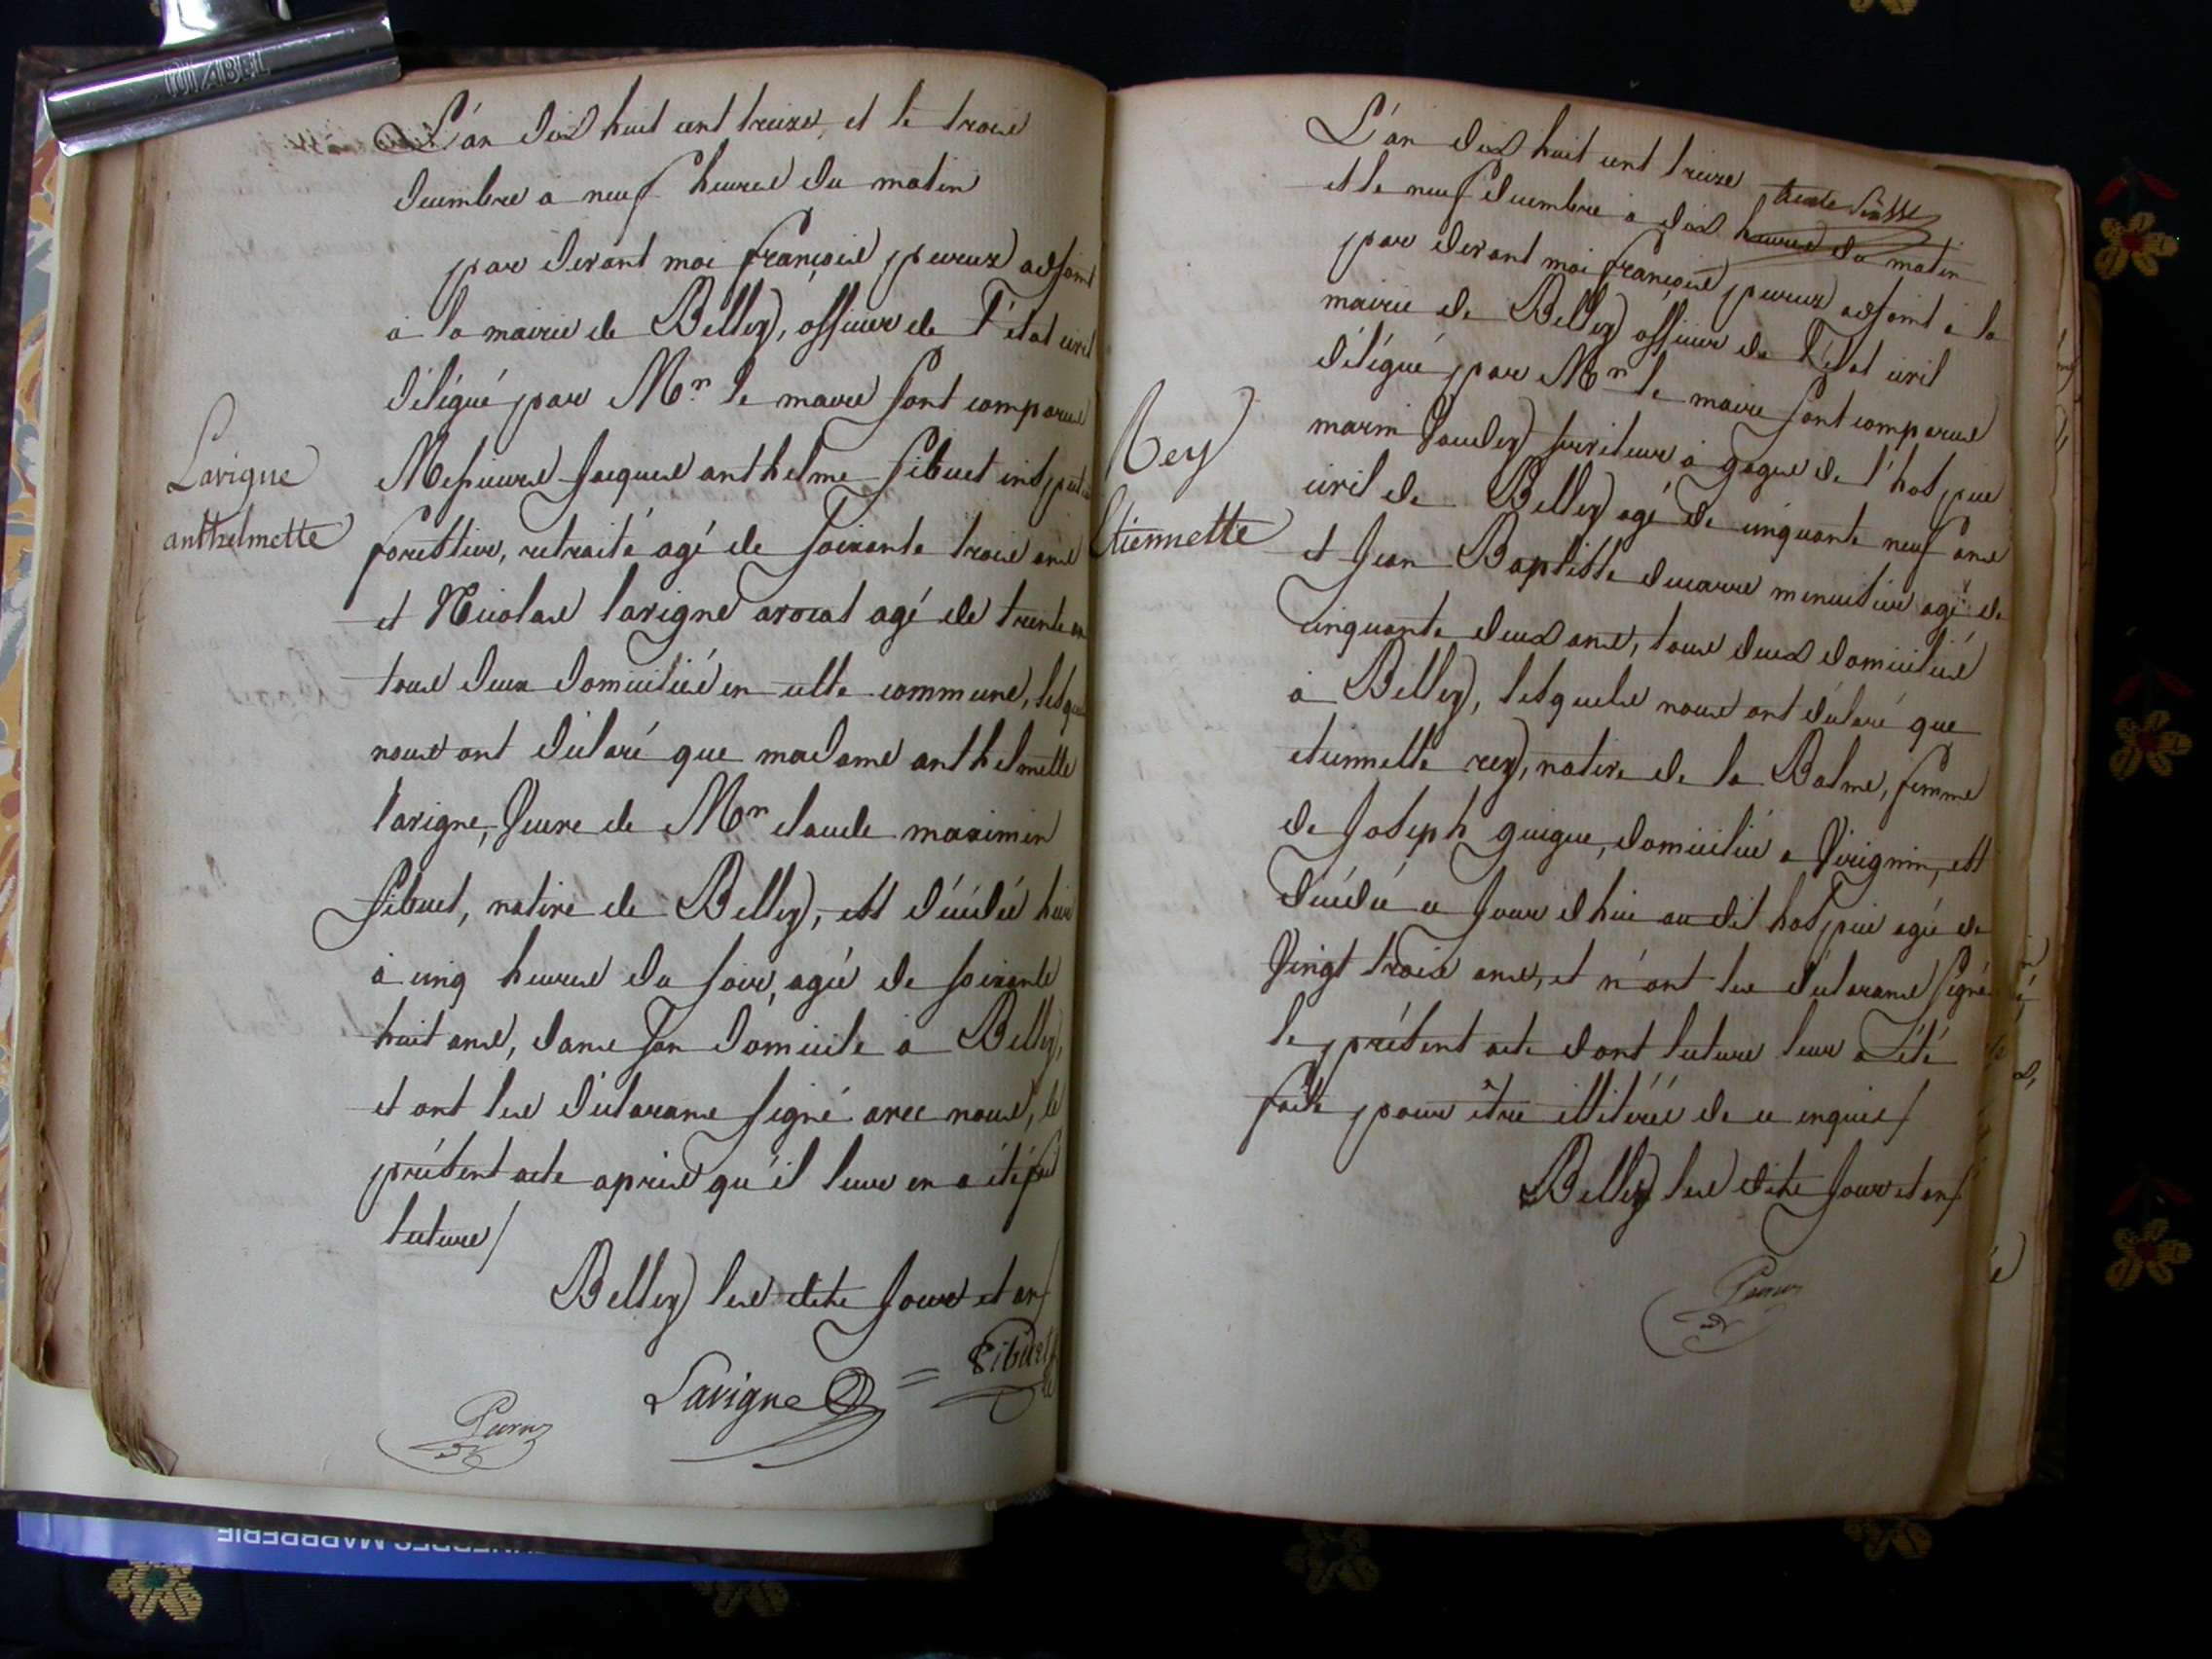 DIABEL
L'an dix huit cent treize, et le trois
decembre a neuf heures du matin
par devant moi françois peruz adjoint
à la mairie de Belley, officier de l'état civil
délégué par Mr le maire sont comparus
Lavigne
anthelmette
Messieurs Jacques anthelme Sibuet
forestier, retraité agé de soixante trois ans
et Nicolas lavigne avocat agé de trente
tous deux domiciliés en cette commune,
nous ont déclaré que madame anthelmette
lavigne, veuve de Mr claude maximin
Sibuet, native de Belley, est décédée hier
à cinq heures du soir, agée de soixante
huit ans, dans son domicile a Belley,
et ont les déclarans signé avec nous, le
présent acte après qu'il leur en a été fait
lecture/
Belley les dits jour et an/
Lavigne = Sibuet
Peruz
L'an dix huit cent treize
et le neuf decembre à dix heures du matin
par devant moi françois peruz adjoint a la
mairie de Belley officier de l'état civil
délégué par Mr le maire sont comparus
Rey
Etiennette
marin serviteur à gages de l'hospice
civil de Belley agé de cinquante neuf ans
et Jean Baptiste ducarre menuisier agé de
cinquante deux ans, tous deux domiciliés
à Belley, lesquels nous ont déclaré que
etiennette rey, native de la Balme, femme
de Joseph guigue, domiciliée a Virignin, est
décédée ce jour d'hui au dit hospice agée de
vingt trois ans, et n'ont les déclarans signé
le présent acte dont lecture leur a été
faite pour être illitérés de ce enquis/
Belley les dits jour et an/
Peruz
MARBRERIE